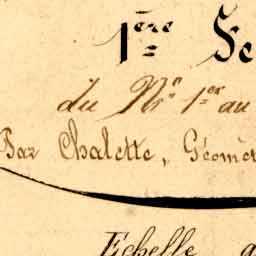 1ère Se
du N° 1er au
Par Chalette, Géomèt
Echelle